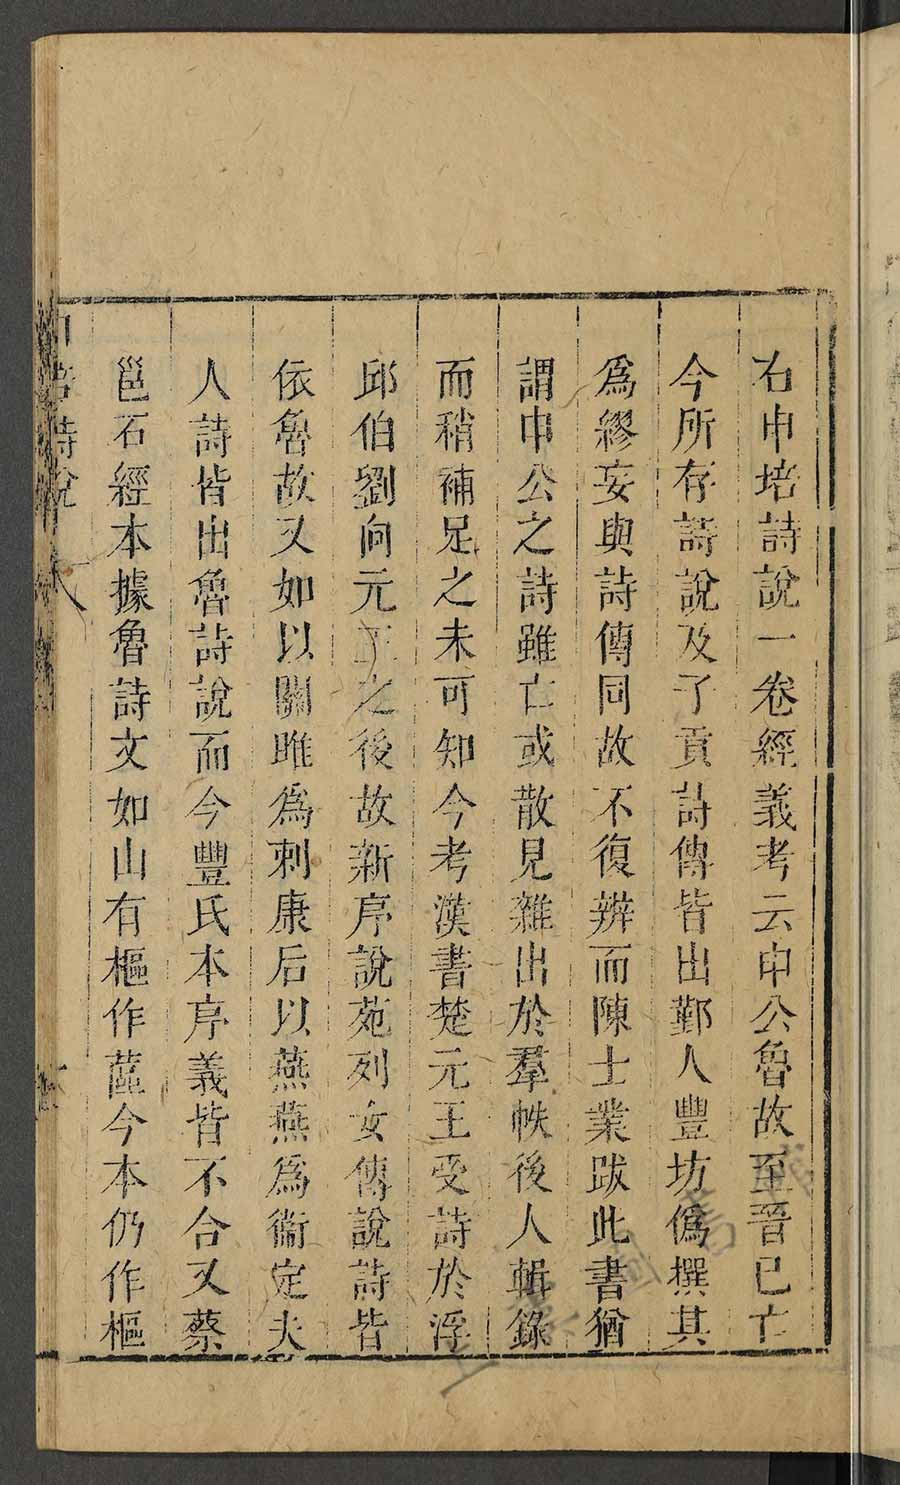 右申培詩說一卷經義考云申公魯故至晉已亡
今所存詩說及子貢詩傳皆出鄞人豐坊僞撰其
爲繆妄與詩傳同故不復辨而陳士業跋此書猶
謂申公之詩雖亡或散見雜出於羣帙後人輯錄
而稍補足之未可知今考漢書楚元王受詩於浮
邱伯劉向元王之後故新序說苑列女傳說詩皆
依魯故又如以關雎爲刺康后以燕燕爲衞定夫
人詩皆出魯詩說而今豐氏本序義皆不合又蔡
邕石經本據魯詩文如山有樞作蓲今本仍作樞
申培詩說